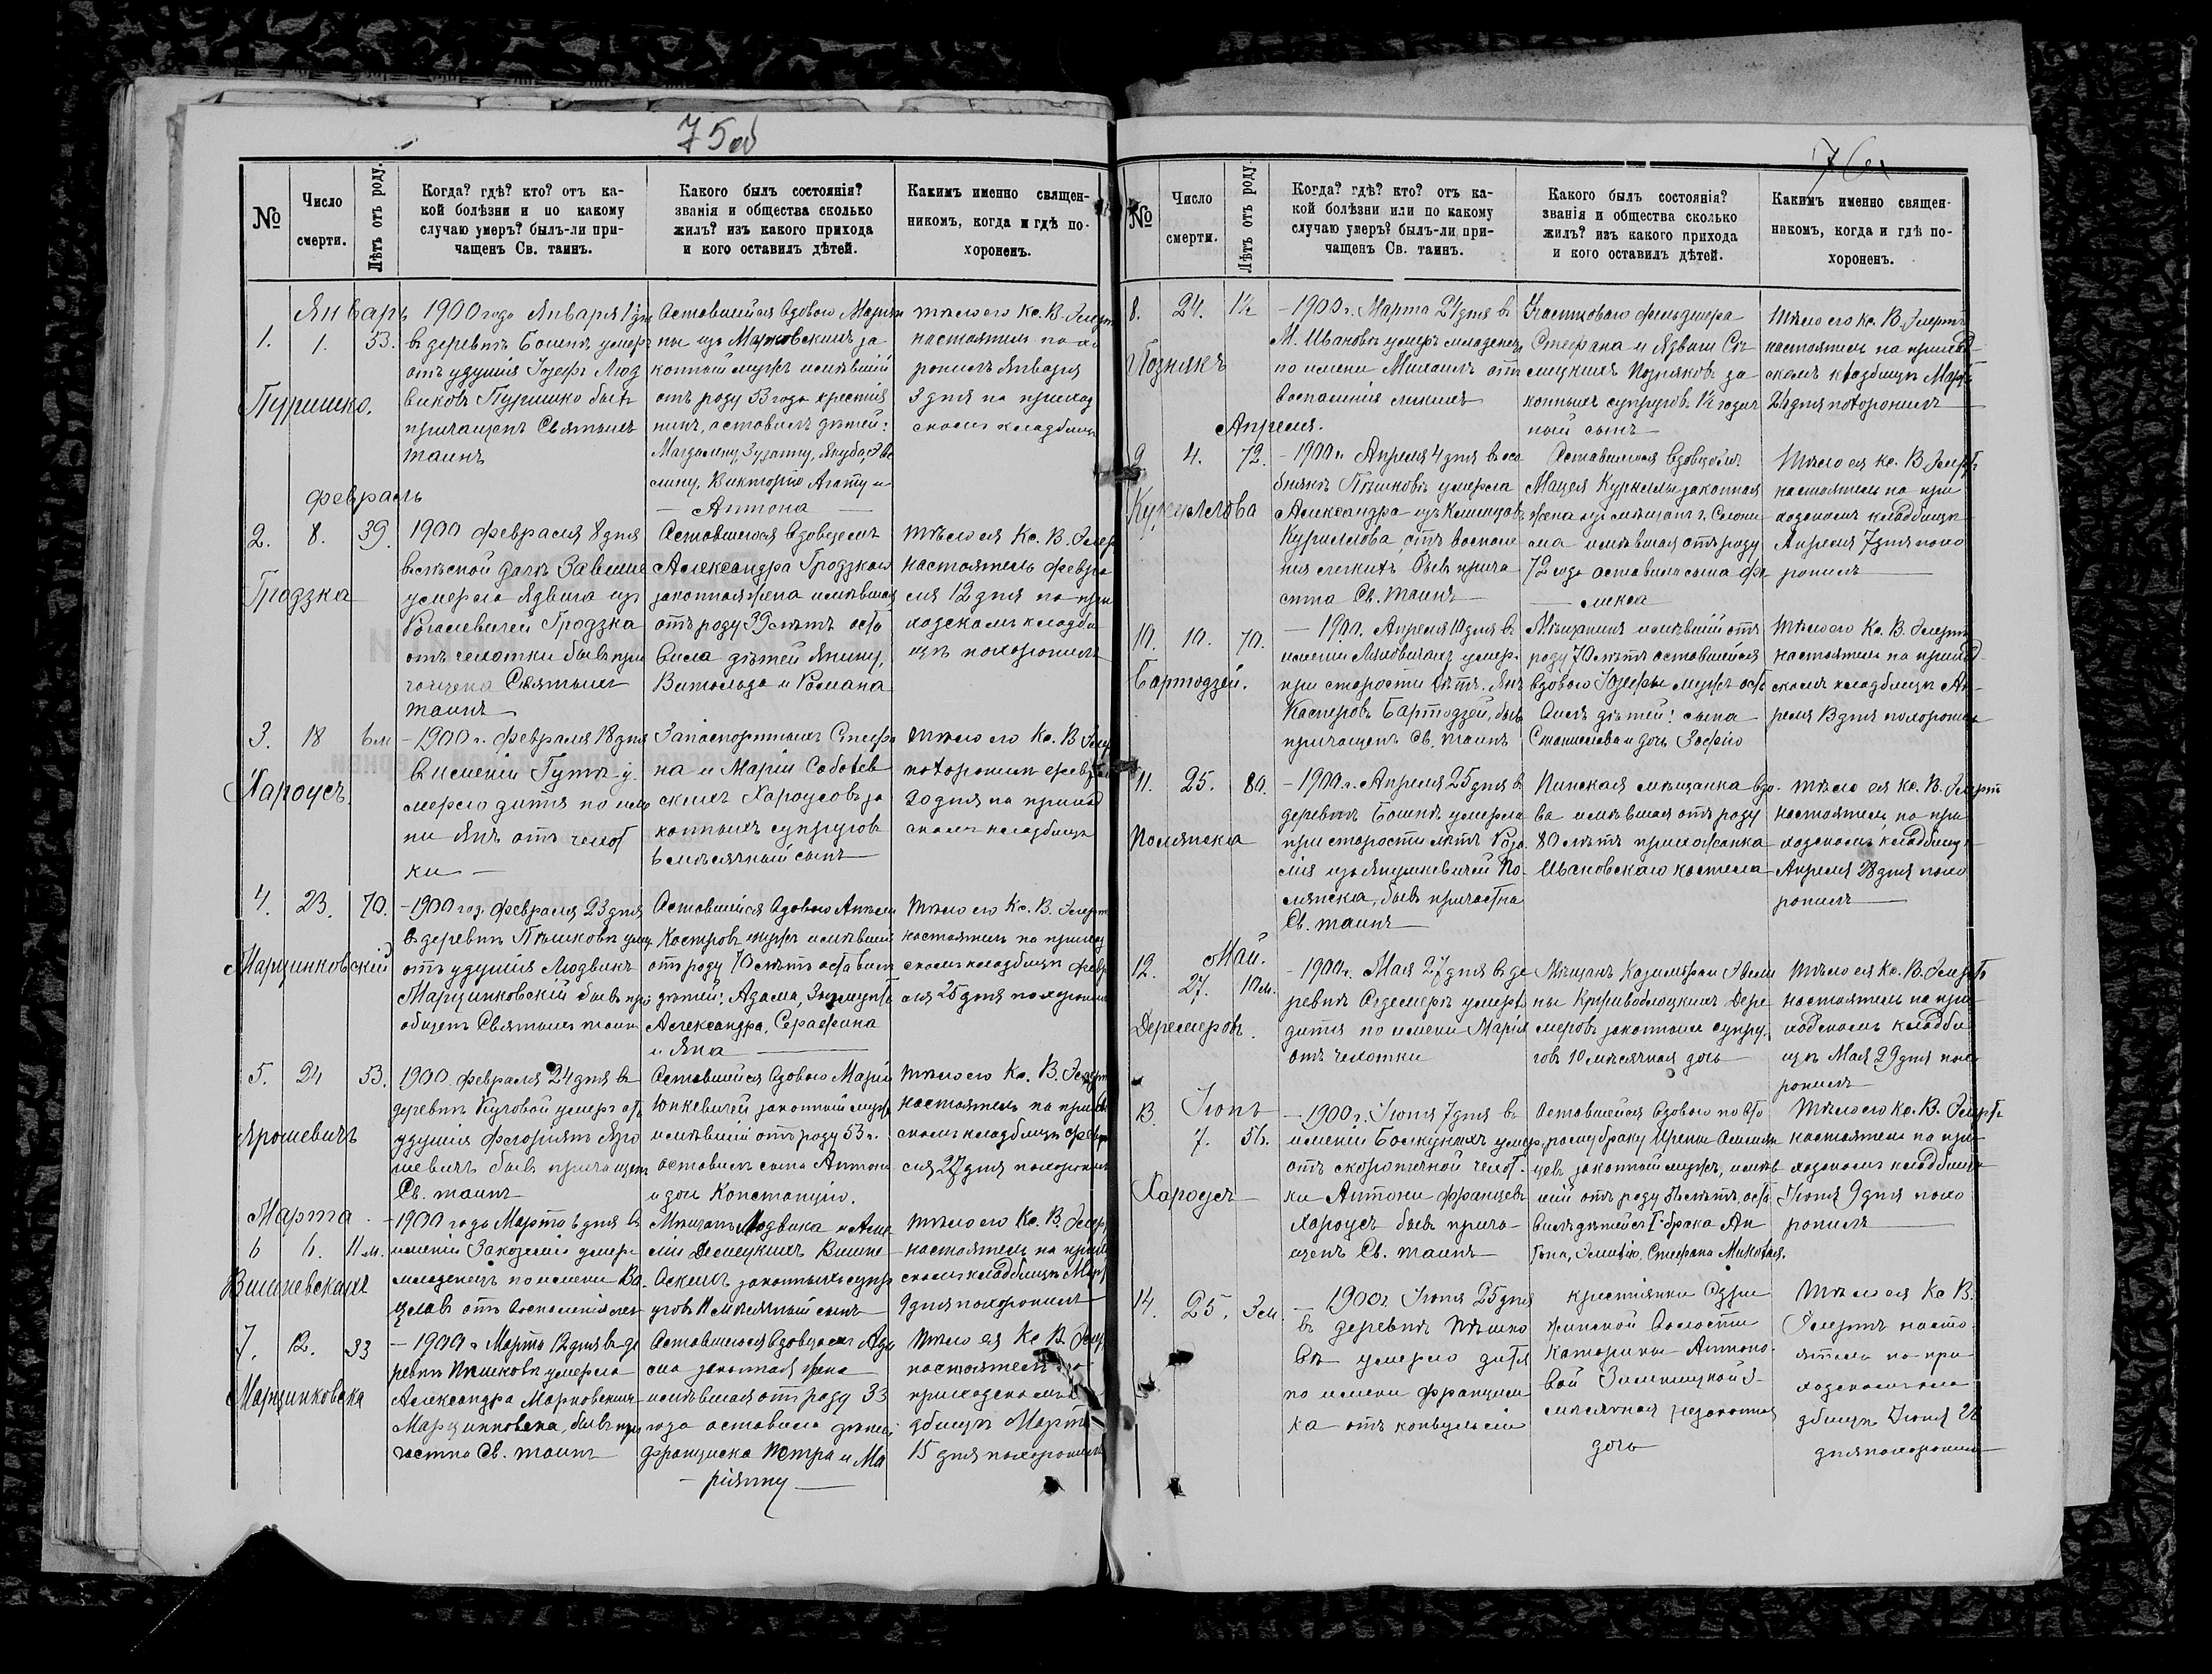 75об
№
Число
смерти.
Лѣтъ отъ роду.
Когда? гдѣ? кто? отъ ка-
кой болѣзни и по какому
случаю умеръ? былъ-ли при-
чащенъ Св. таинъ.
Какого былъ состоянія?
званія и общества сколько
жилъ? изъ какого прихода
и кого оставилъ дѣтей.
Какимъ именно священ-
никомъ, когда и гдѣ по-
хороненъ.
Январь
1.
1.
53.
Пуришко.
1900 года Января 1 дня
въ деревнѣ Бошнѣ умеръ
отъ удушія Іозефъ Люд
виковъ Пуришко бывъ
причащенъ Святыхъ
таинъ
Оставшейся вдовою Маріан
ны изъ Марковскихъ за
конный мужъ имѣвшій
отъ роду 53 года крестья
нинъ, оставилъ дѣтей:
Магдалину, Зузанну, Якуба, Эве
лину, Викторію Агату и
Антона
Тѣло его Кс. В. Элерт
настоятель по хо
ронилъ Января
3 дня на приход
скомъ кладбищѣ
Февраль
2.
8.
39.
Гродзка
1900 февраля 8 дня
въ лѣсной дачѣ Завыше
умерла Ядвига изъ
Рогалевичей Гродзка
отъ чахотки бывъ при
чащена Святыхъ
таинъ
Оставшегося вдовцемъ
Александра Гродзкаго
законная жена имѣвшая
отъ роду 39 лѣтъ оста
вила дѣтей Янину,
Витольда и Романа
Тѣло ея Кс. В. Элер
настоятель Февра
ля 12 дня на при
ходскомъ кладби
щѣ похоронилъ
3.
18
6 м
Хароусъ.
- 1900 г. Февраля 18 дня
въ имѣніи Гутѣ у
мерло дитя по име
ни Янъ отъ чахот
ки -
Запаспортныхъ Стефа
на и Маріи Соболев
скихъ Хароусовъ за
конныхъ супруговъ
6 мѣсячный сынъ
Тѣло его Кс. В Элер
похоронилъ Февраля
20 дня на приход
скомъ кладбищѣ
4.
23.
70.
Марцинковский
- 1900 год. Февраля 23 дня
въ деревнѣ Пѣшковѣ умер
отъ удушія Людвикъ
Марцинковскій бывъ при
общенъ Святыхъ таинъ
Оставшейся вдовою Анели
Костровъ мужъ имѣвшій
отъ роду 70 лѣтъ оставилъ
дѣтей: Адама, Зыгмунта
Александра, Серафина
и Яна
Тѣло его Кс. В. Элерт
настоятель на приход
скомъ кладбищѣ Февр
аля 25 дня похоронилъ
5.
24
53.
Ярошевичъ
1900. Февраля 24 дня въ
деревнѣ Куговой умеръ отъ
удушія Флоріанъ Яро
шевичъ бывъ причащенъ
Св. таинъ
Оставшейся вдовою Маріи
Юнкевичей законный мужъ
имѣвшій отъ роду 53 г.
оставилъ сына Антона
и дочь Констанцію.
Тѣло его Кс. В. Элерт
настоятель на приход
скомъ кладбищѣ Февра
ля 27 дня похоронилъ
Марта
6
6.
11 м.
Вишневскихъ
- 1900 года Марта 6 дня въ
имѣніи Закозелѣ умеръ
младенецъ по имени Ва
цлавъ отъ воспаленія лег
Мѣщанъ Людвика и Ама
ліи Демецкихъ Вишне
вскихъ законныхъ супр
уговъ 11 мѣсячный сынъ
Тѣло его Кс. В. Элер
настоятель на прихо
скомъ кладбищѣ Март
9 дня похоронилъ
7.
12.
33
Марцинковска
- 1900 г Марта 12 дня въ де
ревнѣ Пѣшковѣ умерла
Александра Марковскихъ
Марцинковска, бывъ при
частна Св. таинъ
Оставшегося вдовцемъ Ада
ма законная жена
имѣвшая отъ роду 33
года оставила дѣтей
Франциска Петра и Ма
ріянну
Тѣло ея Кс В. Элер
настоятель
приходскомъ
дбищѣ Марта
15 дня похоронилъ
76
№
Число
смерти.
Лѣтъ отъ роду.
Когда? гдѣ? кто? отъ ка-
кой болѣзни или по какому
случаю умеръ? былъ-ли при-
чащенъ Св. таинъ.
Какого былъ состоянія?
званія и общества сколько
жилъ? изъ какого прихода
и кого оставилъ дѣтей.
Какимъ именно священ-
никомъ, когда и гдѣ по-
хороненъ.
8.
24.
1½
Познякъ
- 1900 г. Марта 24 дня въ
М. Ивановѣ умеръ младенецъ
по имени Михаилъ отъ
воспаленія легкихъ
Участковаго фельдшера
Стефана и Ядвиги
Позняковъ за
конныхъ супругов. 1½ годич
ный сынъ
Тѣло его Кс. В. Элертъ
настоятель на приход
скомъ кладбищѣ Марта
24 дня похоронилъ
Апреля.
9
4.
72.
Куриллова
- 1900 г. Апреля 4 дня въ
Пѣшковѣ умерла
Александра изъ
Куриллова, отъ воспале
нія легкихъ бывъ прича
стна Св. таинъ
Оставшегося вдовцемъ
Мацея Куриллы законная
жена изъ мѣщанъ г. Слони
ма имѣвшая отъ роду
72 года оставила сына Фе
ликса
Тѣло ея Кс. В. Элертъ
настоятель на при
ходскомъ кладбищѣ
Апреля 7 дня похо
ронилъ
10.
10.
70.
Бартодзей.
- 1900. Апреля 10 дня въ
имѣніи Ляховичахъ умеръ
при старости лѣтъ. Янъ
Касперовъ Бартодзей, бывъ
причащенъ Св. таинъ
Мѣщанинъ имѣвшій отъ
роду 70 лѣтъ оставшейся
вдовою Іозефы мужъ оста
вилъ дѣтей: сына
Станислава и дочь Зофію
Тѣло его Кс. В. Элертъ
настоятель на приход
скомъ кладбищѣ Ап-
реля 13 дня похоронилъ
11.
25.
80.
Полянска
- 1900. г. Апреля 25 дня въ
деревнѣ Бошнѣ умерла
при старости лѣтъ Роза
лія изъ Янушкевичей По
лянска, бывъ причастна
Св. таинъ
Пинская мѣщанка вдо-
ва имѣвшая отъ роду
80 лѣтъ прихожанка
Ивановскаго костела
Тѣло ея Кс. В. Элерт
настоятель на при
ходскомъ кладбищѣ
Апреля 28 дня похо
ронилъ
Май.
12.
27.
10 м.
Деремеровъ.
- 1900 г. Мая 27 дня въ де
ревнѣ Огдемерѣ умерло
дитя по имени Марія
отъ чахотки
Мѣщанъ Казиміра и Эвели
ны Кривоблоцкихъ Дере
меровъ законныхъ супру
говъ 10 мѣсячная дочь
Тѣло ея Кс. В. Элертъ
настоятель на при
ходскомъ кладби
щѣ Мая 29 дня похо
ронилъ
Іюнь
13.
7.
56.
Хароусъ
- 1900 г. Іюня 7 дня въ
имѣніи Болкунахъ умер
отъ скоротечной чахот-
ки Антони Францевъ
Хароусъ бывъ прича-
щенъ Св. таинъ
Оставшейся вдовою по вто
рому браку Ирены
законный мужъ, имѣв
шій отъ роду 56 лѣтъ, оста
вилъ дѣтей съ I брака Ан
тона, Эмилію, Стефана Михаила.
Тѣло его Кс. В. Элертъ
настоятель на при
ходскомъ кладбищѣ
Іюня 9 дня похо
ронилъ
14.
25.
3 м
- 1900 г. Іюня 25 дня
въ деревнѣ Пѣшко
вѣ умерло дитя
по имени Франциш
ка отъ конвульсіи
крестьянки Одри
жинской волости
Катарины Антоно-
вой Зилиницкой 3-
мѣсячная незаконная
дочь
Тѣло ея Кс В.
Элертъ насто-
ятель на при
ходскомъ кла
дбищѣ Іюня 28
дня похоронилъ